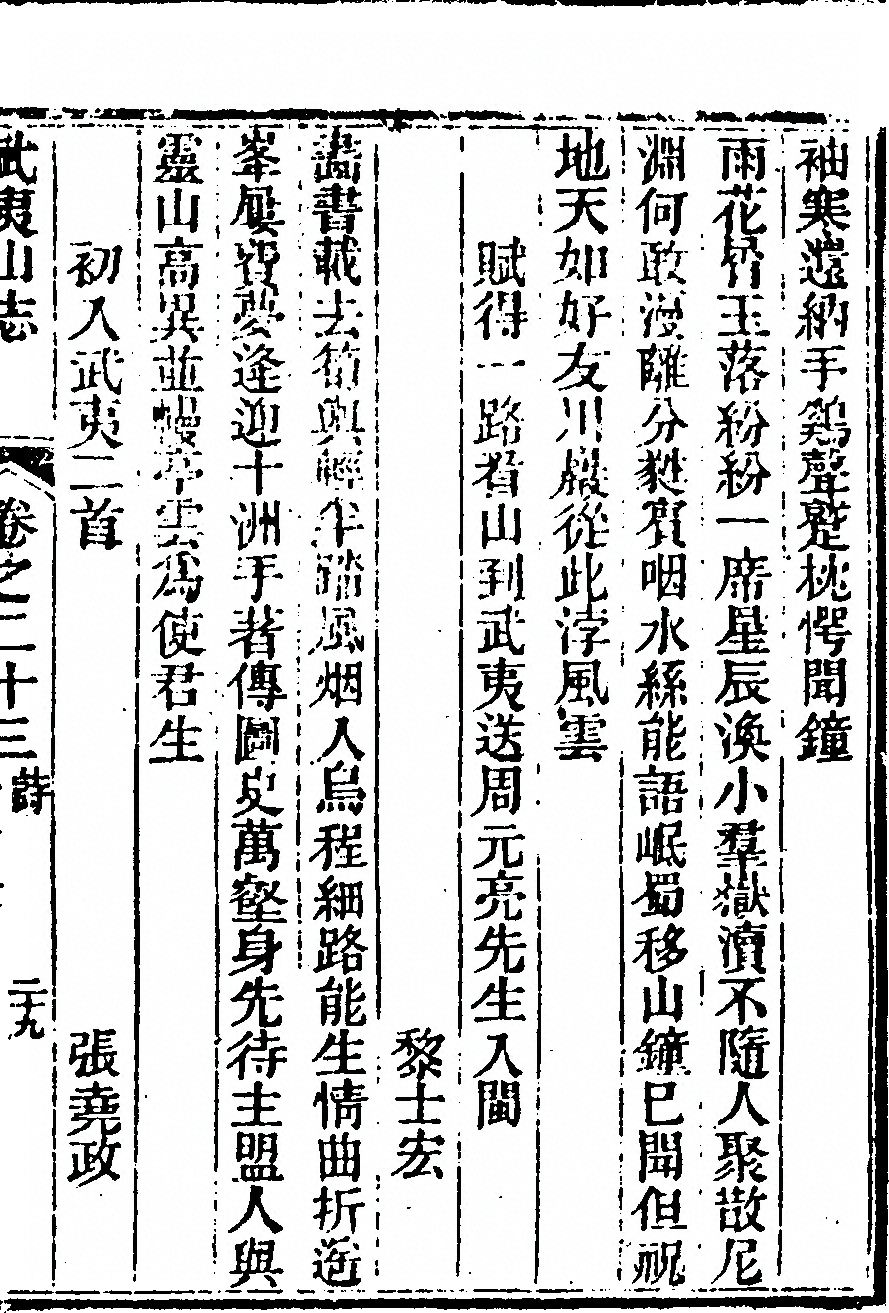 袖寒還納手鷄聲蹔枕愕聞鐘
雨花皆玉落紛紛一席星辰渙小羣嶽瀆不隨人聚散尼
淵何敢漫離分甦賓咽水絲能語岷蜀移山鐘已聞但祝
地天如好友川巖從此浡風雲
賦得一路看山到武夷送周元亮先生入閩
黎士宏
畵書載去筍輿輕半踏風烟人烏程細路能生情曲折
峯屢費夢逢迎十洲手著傳圖史萬壑身先待主盟人與
靈山高異並幔亭雲爲使君生
初入武夷二首
張堯政
武夷山志
卷之二十三
詩
二十九